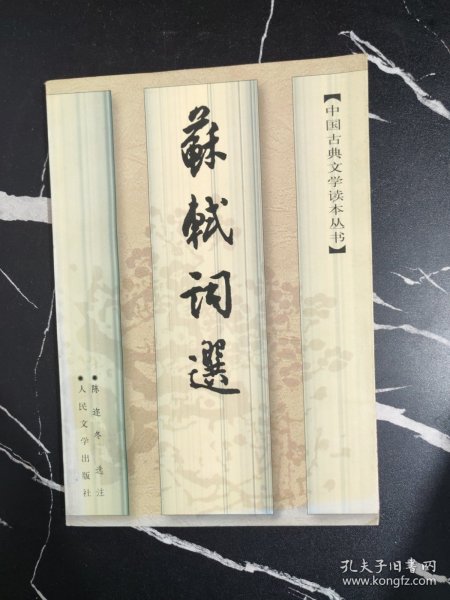 【中国古典文学读本丛书】
蘇軾詞選
●陈迩冬选注
●人民文学出版社
孔夫子旧书网
www.kongfz.com